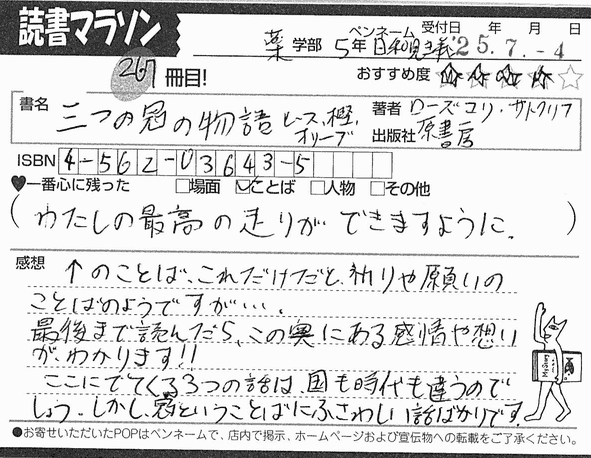 読書マラソン
ペンネーム 受付日 年 月 日
薬学部 5年 日和見主義 '25.7.-4
267冊目! おすすめ度 ☆☆☆☆☆
書名 三つの冠の物語 ヒース、樫、オリーブ
著者 ローズマリ・サトクリフ
出版社 原書房
ISBN 4-562-03643-5
♥一番心に残った □場面 ☑ことば □人物 □その他
(わたしの最高の走りができますように。)
感想 ↑のことば、これだけだと、祈りや願いの
ことばのようですが…。
最後まで読んだら、この奥にある感情や想い
が、わかります!!
ここにでてくる3つの話は、国も時代も違うので
しょう。しかし、冠ということばにふさわしい話ばかりです。
●お寄せいただいたPOPはペンネームで、店内で掲示、ホームページおよび宣伝物への転載をご了承ください。